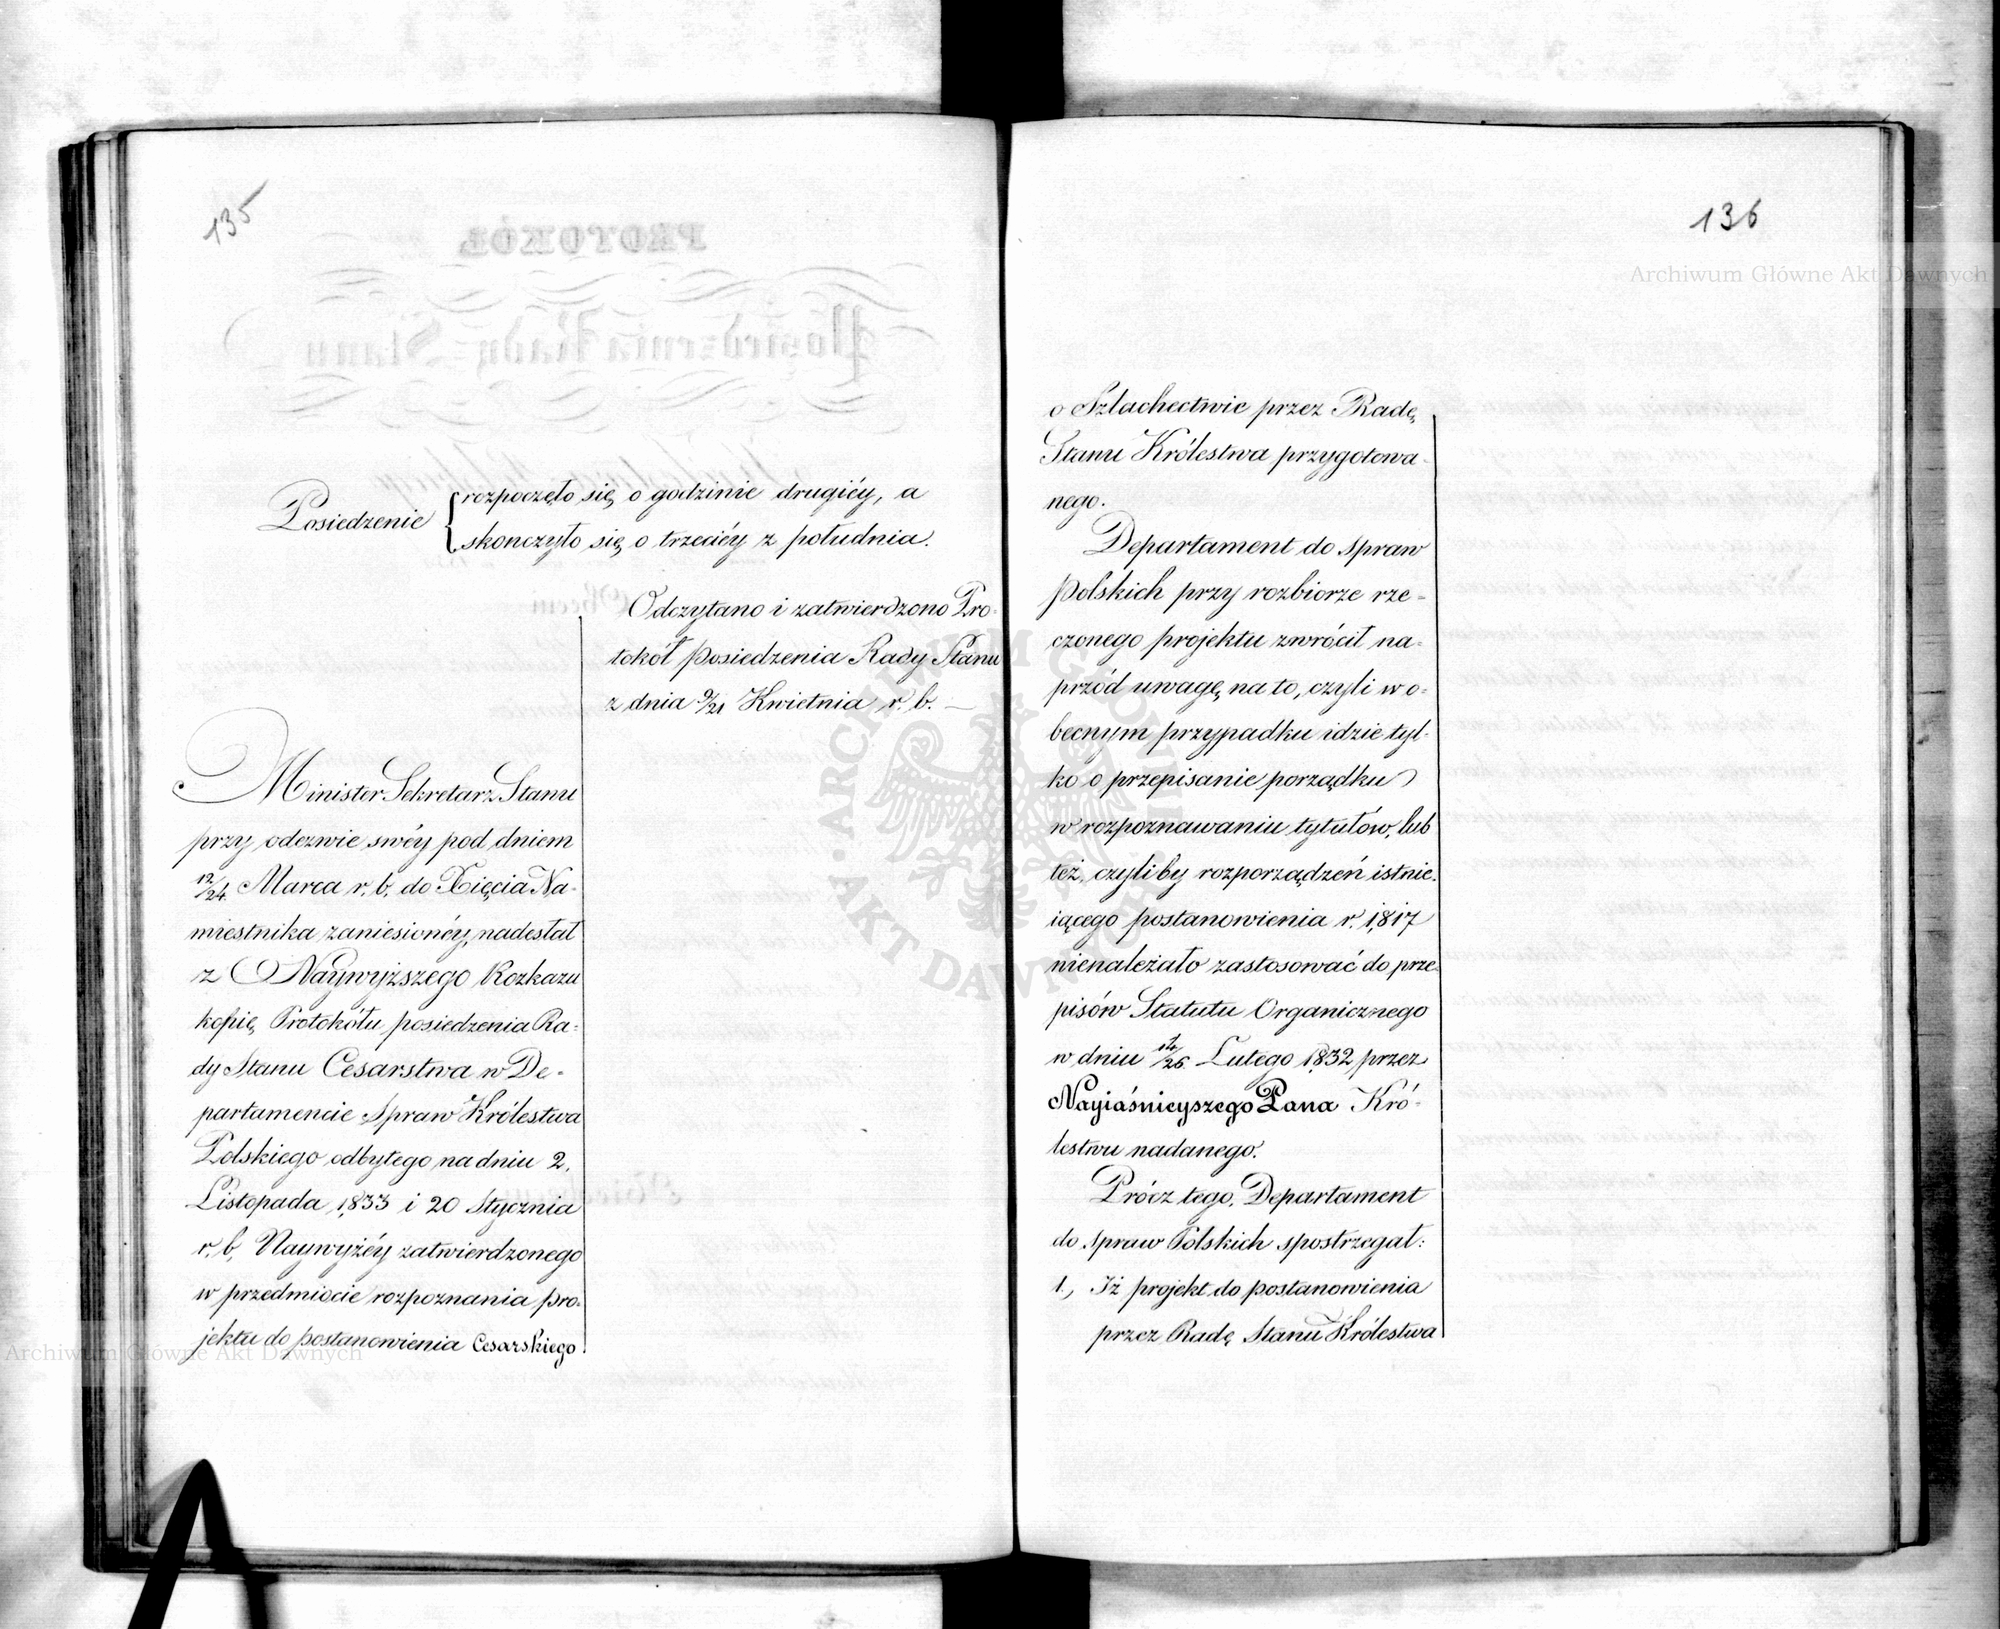 135
Posiedzenie { rozpoczęło się o godzinie drugiéy, a
skonczyło się o trzeciéy z południa.
Odczytano i zatwierdzono Pro-
tokół posiedzenia Rady Stanu
z dnia 9/21 Kwietnia r. b. —
Minister Sekretarz Stanu
przy odezwie swéy pod dniem
12/24. Marca r. b. do Xięcia Na-
miestnika zaniesionéy, nadesłał
z Naywyższego Rozkazu
kopię Protokółu posiedzenia Ra-
dy Stanu Cesarstwa w De-
partamencie Spraw Królestwa
Polskiego odbytego na dniu 2.
Listopada 1833 i 20 Stycznia
r. b. Naywyżéy zatwierdzonego
w przedmiocie rozpoznania pro-
jektu do postanowienia Cesarskiego
136
o Szlachectwie przez Radę
Stanu Królestwa przygotowa-
nego.
Departament do spraw
Polskich przy rozbiorze rze-
czonego projektu zwrócił na-
przód uwagę na to, czyli w o-
becnym przypadku idzie tyl-
ko o przepisanie porządku
w rozpoznawaniu tytułów, lub
też, czyliby rozporządzeń istnie-
iącego postanowienia r. 1817
nienależało zastosować do prze-
pisów Statutu Organicznego
w dniu 14/26. Lutego 1832 przez
Nayiaśnieyszego Pana Kró-
lestwu nadanego.
Prócz tego, Departament
do spraw Polskich spostrzegał:
1., Iż projekt do postanowienia
przez Radę Stanu Królestwa
Archiwum Główne Akt Dawnych
Archiwum Główne Akt Dawnych
ARCHIWUM GŁÓWNE • AKT DAWNYCH •